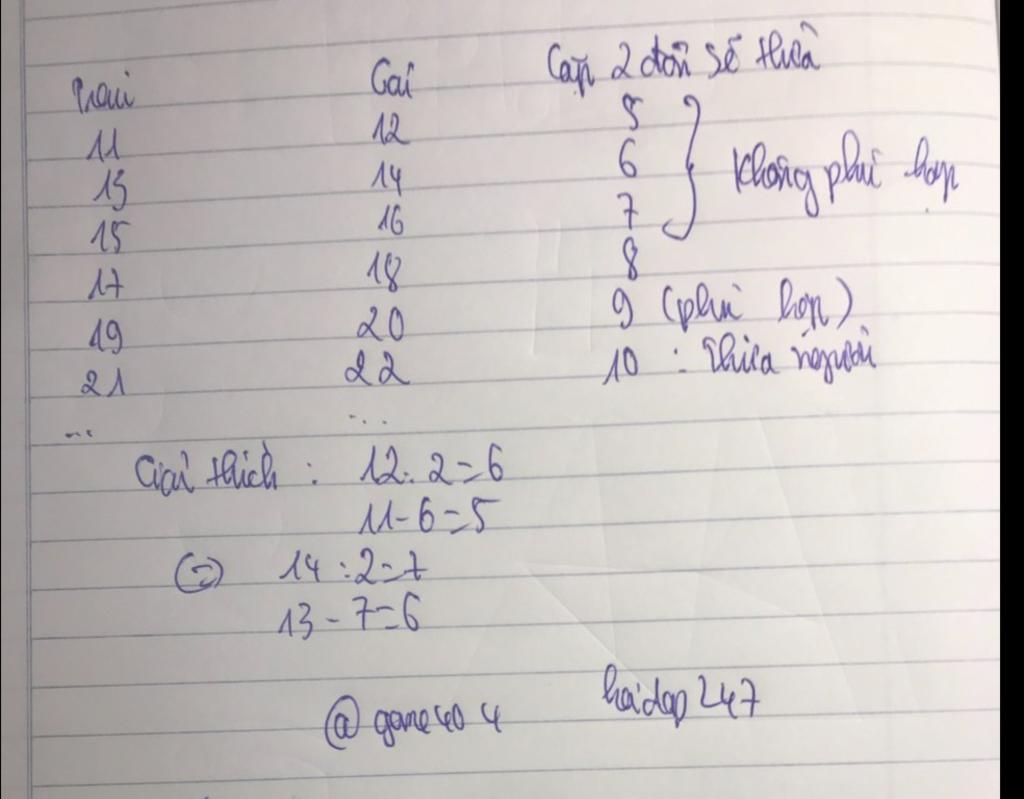 Trai Gái Cặp 2 đơn số thừa
11 12 5
13 14 6 Không phù hợp
15 16 7
17 18 8
19 20 9 (phù hợp)
21 22 10 : Thừa người
... ...
Giải thích : 12:2=6
11-6=5
14:2=7
13-7=6
@game404 hoidap247